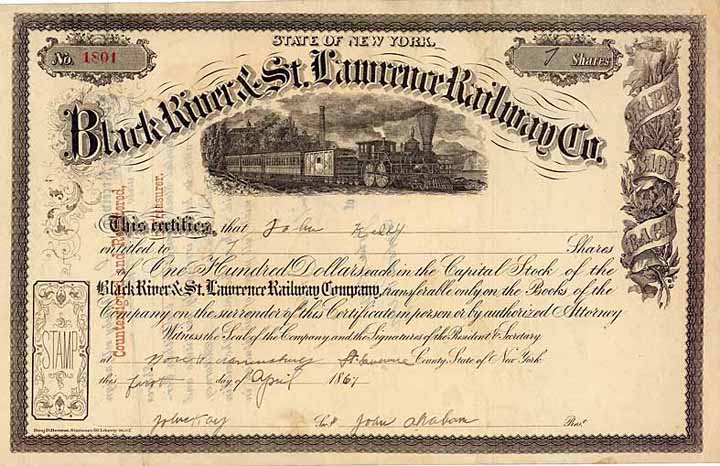 STATE OF NEW YORK.
No. 1801
7 Shares
Black River & St. Lawrence Railway Co.
SHARES $100 EACH
Countersigned and Registered,
Treasurer.
This certifies, that John Kelly
entitled to 7 Shares
of One Hundred Dollars each in the Capital Stock of the
Black River & St. Lawrence Railway Company, transferable only on the Books of the
Company on the surrender of this Certificate in person or by authorized Attorney
Witness the Seal of the Company and the Signatures of the President & Secretary
at St Lawrence County, State of New York.
this first day of April 1867
STAMP
Sec.y John Pres.t